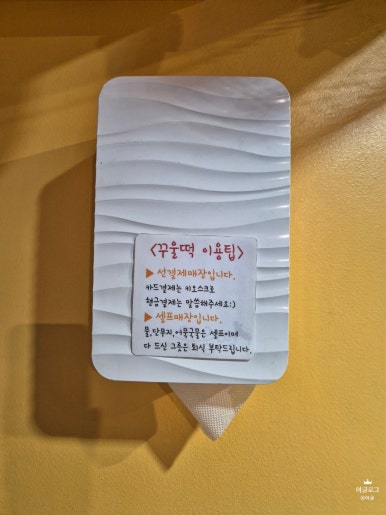 <꾸울떡 이용팁>
▶ 선결제매장입니다.
카드결제는 키오스크로
현금결제는 말씀해주세요:)
▶ 셀프매장입니다.
물,단무지,어묵국물은 셀프이며
다 드신 그릇은 퇴식 부탁드립니다.